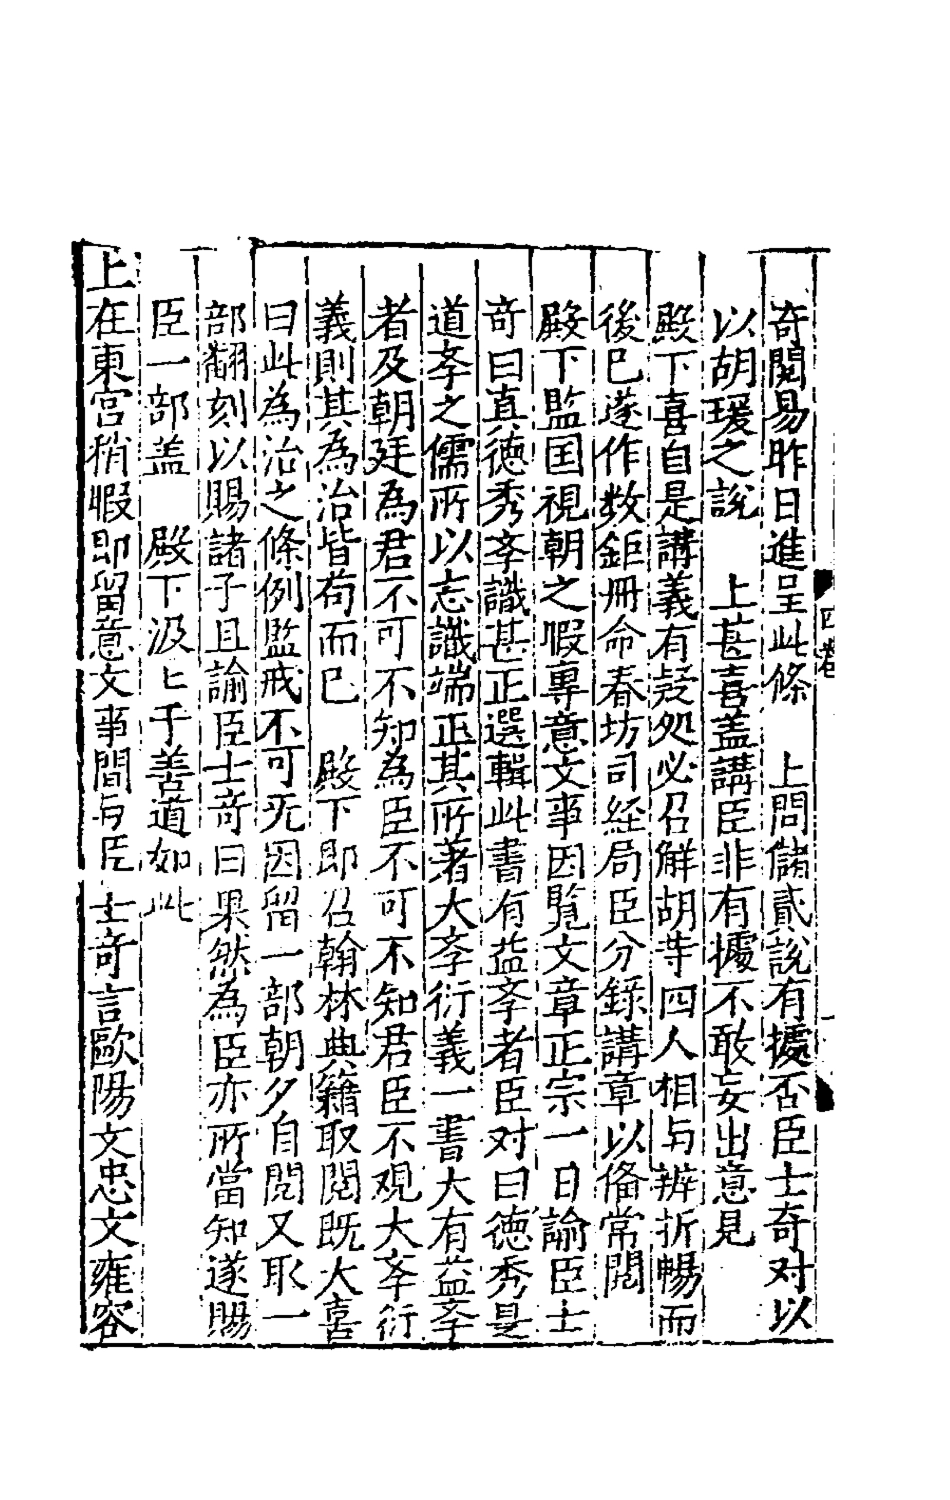 奇閱易昨日進呈此條　上問儲貳說有據否臣士奇对以
以胡瑗之說　上甚喜盖講臣非有據不敢妄出意見
殿下喜自是講義有疑処必召觧胡寺四人相与辨折暢而
後已遂作数鉅冊命春坊司経局臣分錄講章以俻常閱
殿下監国視朝之暇專意文事因覧文章正宗一日諭臣士
奇曰真徳秀斈識甚正選輯此書有益斈者臣对曰徳秀是
道斈之儒所以志識端正其所著大斈衍義一書大有益斈
者及朝廷為君不可不知為臣不可不知君臣不观大斈衍
義則其為治皆苟而已　殿下即召翰林典籍取閱既大喜
曰此為治之條例監戒不可无因留一部朝夕自閱又取一
部翻刻以賜諸子且諭臣士奇曰果然為臣亦所當知遂賜
臣一部盖　殿下汲〻于善道如此
上在東宫稍暇即留意文事間与臣士奇言歐陽文忠文雍容
四卷